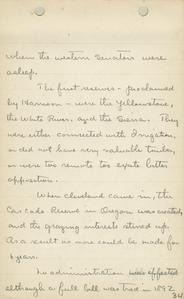 when the western Senators were
asleep.
The first reserves - proclaimed
by Harrison - were the Yellowstone,
the White River, and the Sierra. They
were either connected with Irrigation,
or did not have very valuable timber,
or were too remote to excite bitter
opposition.
When Cleveland came in, the
Cascade Reserve in Oregon was created,
and the grazing interests stirred up.
As a result no more could be made for
years.
No administration was effected
although a full bill was tried in 1892